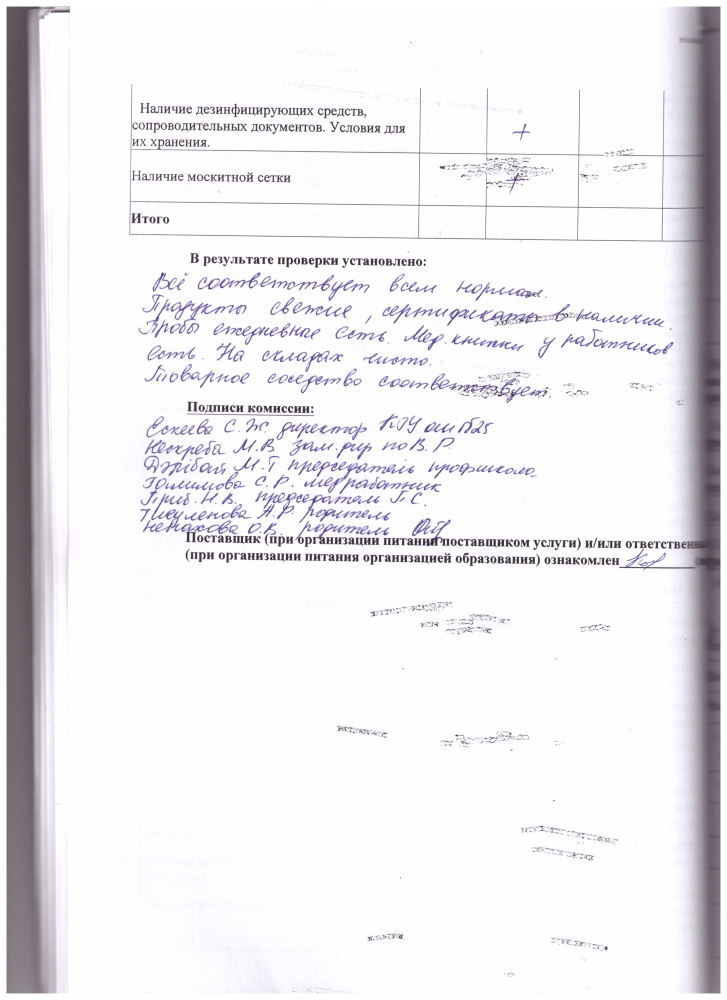 Наличие дезинфицирующих средств,
сопроводительных документов. Условия для
их хранения.
+
Наличие москитной сетки
+
Итого
В результате проверки установлено:
Всё соответствует всем нормам.
Продукты свежие, сертификаты в наличии.
Пробы ежедневные есть. Мед. книжки у работников
есть. На складах чисто.
Товарное соседство соответствует.
Подписи комиссии:
Ескеева С.Ж. директор КГУ ошГ №25
М.В. зам. дир по В.Р.
М.Т председатель профшкола
Галимова С.Р. медработник
Н.В. председатель П.С.
А.Р. родитель
О.В. родитель
Поставщик (при организации питания поставщиком услуги) и/или ответственн
(при организации питания организацией образования) ознакомлен